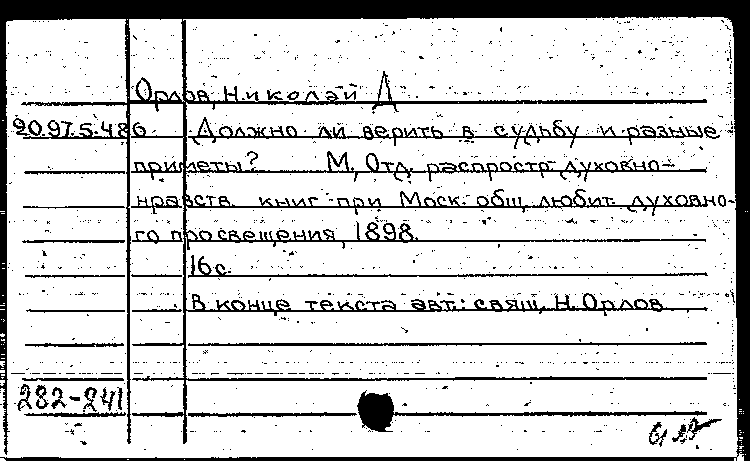 Орлов, Николай Д
90.97.5.486 Должно ли верить в судьбу и разные
приметы? М, Отд. распростр. духовно-
нравств. книг при Моск. общ. любит. духовно-
го просвещения, 1898.
16с.
В конце текста авт.: свящ. Н. Орлов
282-241